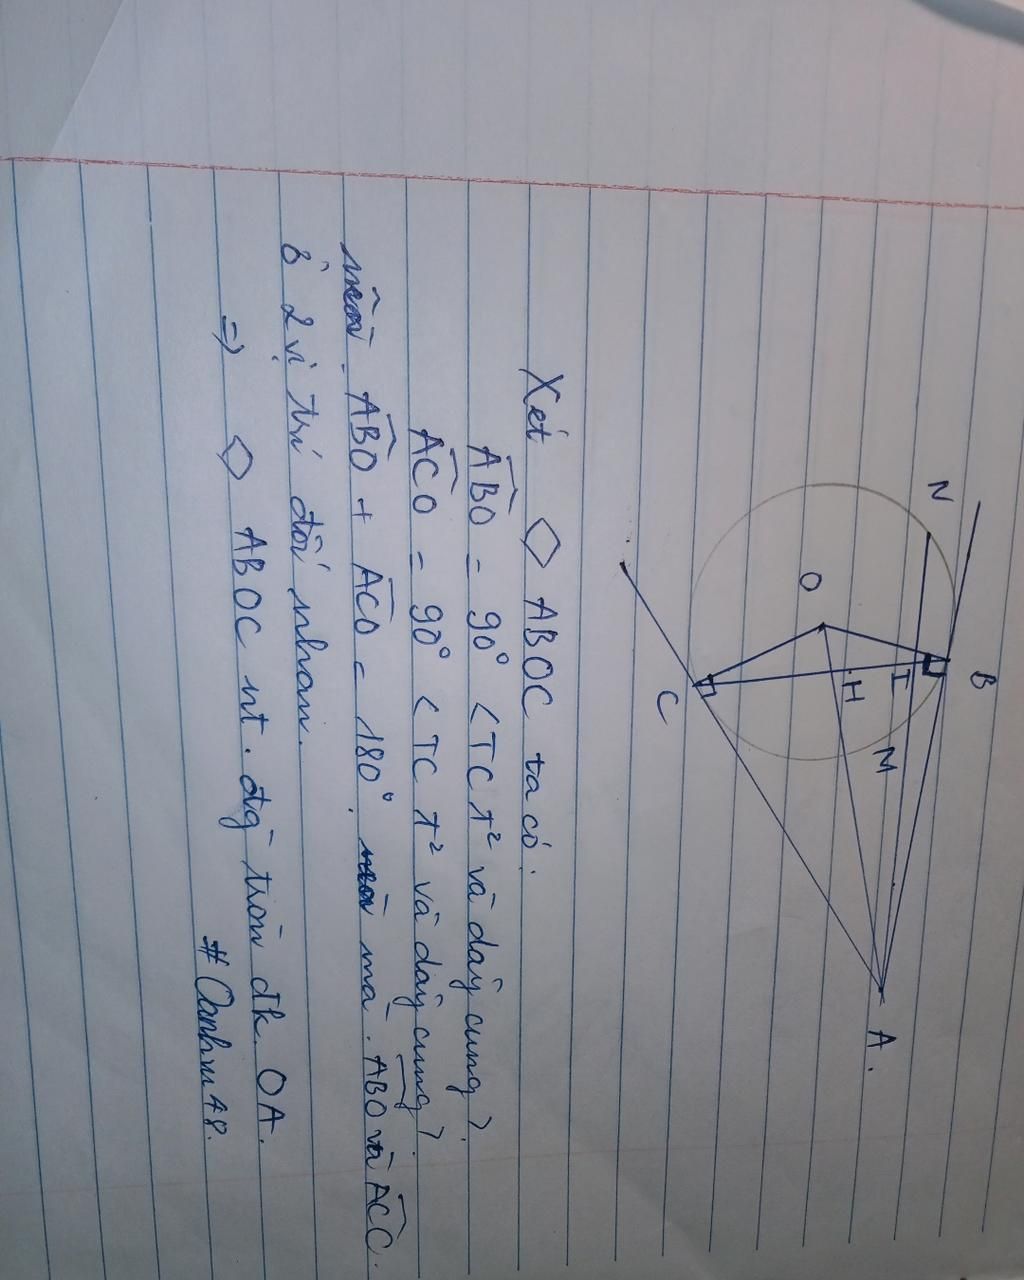 N
B
O
I
H
M
C
A.
Xét ◇ ABOC ta có:
ABO = 90° <TC t² và dây cung>.
ACO = 90° <TC t² và dây cung>.
ABO + ACO = 180°. mà. ABO và ACC.
ở 2 vị trí đối nhau.
=> ◇ ABOC nt. đg tròn đk. OA.
#Oanhm48.